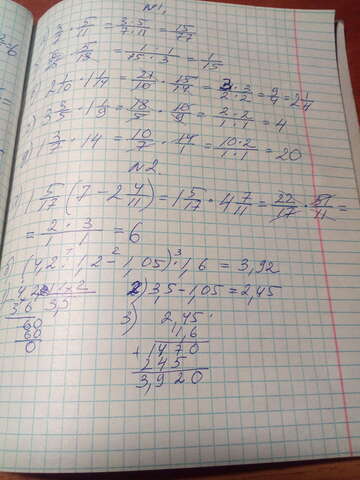 N1.
3/7 · 5/11 = 3·5/7·11 = 15/77
· 5/18 = 1·1/15·3 = 1/15
2 1/10 · 1 1/14 = 21/10 · 15/14 = 3·3/2·2 = 9/4 = 2 1/4
3 3/5 · 1 1/9 = 18/5 · 10/9 = 2·2/1·1 = 4
1 3/7 · 14 = 10/7 · 14/1 = 10·2/1·1 = 20
N2.
1 5/17 (7 - 2 4/11) = 1 5/17 · 4 7/11 = 22/17 · 51/11 =
= 2·3/1·1 = 6
(4,2 : 1,2 - 1,05) · 1,6 = 3,92
4,2 1,2
36 3,5
60
60
0
2) 3,5 - 1,05 = 2,45
3) 2,45
1,6
+ 1470
245
3,920